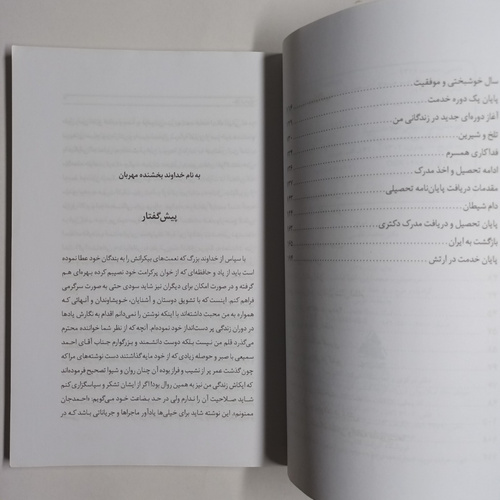 سال خوشبختی و موفقیت
پایان یک دوره خدمت
آغاز دوره‌ای جدید در زندگانی من
تلخ و شیرین
فداکاری همسرم
ادامه تحصیل و اخذ مدرک
مقدمات دریافت پایان‌نامه تحصیلی
دام شیطان
پایان تحصیل و دریافت مدرک دکتری
بازگشت به ایران
پایان خدمت در ارتش
به نام خداوند بخشنده مهربان
پیش‌گفتار
با سپاس از خداوند بزرگ که نعمت‌های بیکرانش را به بندگان خود عطا نموده
است باید از یاد و حافظه‌ای که از خوان پرکرامت خود نصیبم کرده بهره‌ای هم
گرفته و در صورت امکان برای دیگران نیز شاید سودی حتی به صورت سرگرمی
فراهم کنم. اینست که با تشویق دوستان و آشنایان، خویشاوندان و آنهائی که
همواره به من محبت داشته‌اند با اینکه نوشتن را نمی‌دانم اقدام به نگارش یادها
در دوران زندگی پر دست‌انداز خود نموده‌ام. آنچه که از نظر شما خواننده محترم
می‌گذرد قلم من نیست بلکه دوست دانشمند و بزرگوارم جناب آقای احمد
سمیعی با صبر و حوصله زیادی که از خود مایه گذاشتند دست نوشته‌های مرا که
چون گذشت عمر پر از نشیب و فراز بوده آن چنان روان و شیوا تصحیح فرموده‌اند
که ایکاش زندگی من نیز به همین روال بود! اگر از ایشان تشکر و سپاسگزاری کنم
شاید صلاحیت آن را ندارم ولی در حد بضاعت خود می‌گویم: «احمدجان
ممنونم». این نوشته شاید برای خیلی‌ها یادآور ماجراها و جریاناتی باشد که در